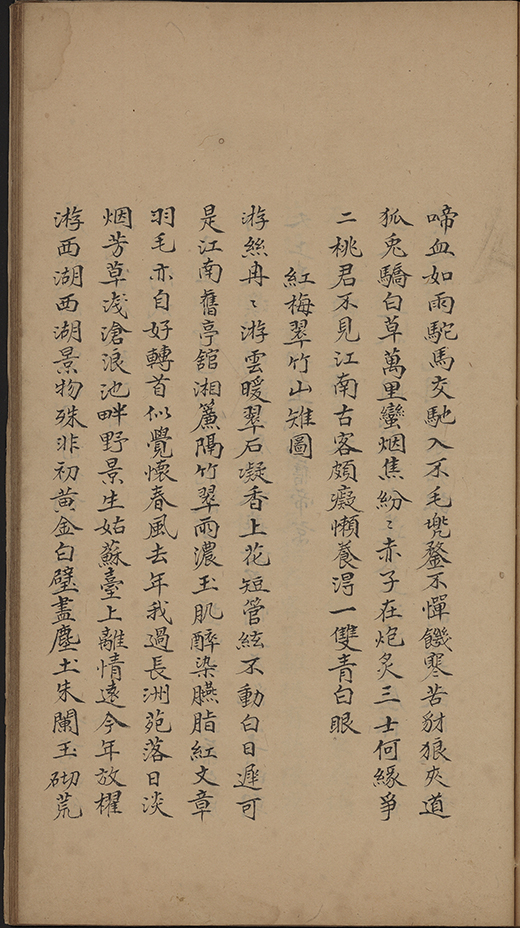 啼血如雨駝馬交馳入不毛兠鍪不憚饑寒苦豺狼夾道
狐兎驕白草萬里蠻烟焦紛〻赤子在炮炙三士何緣爭
二桃君不見江南古客頗癡懶養淂一雙青白眼
紅梅翠竹山雉圖
游絲冉〻游雲暖翠石凝香上花短管絃不動白日遲可
是江南舊亭舘湘簾隔竹翠雨濃玉肌醉染臙脂紅文章
羽毛亦自好轉首似覺懷春風去年我過長洲苑落日淡
烟芳草淺滄浪池畔野景生姑蘇臺上離情遠今年放櫂
游西湖西湖景物殊非初黄金白璧盡塵土朱闌玉砌荒